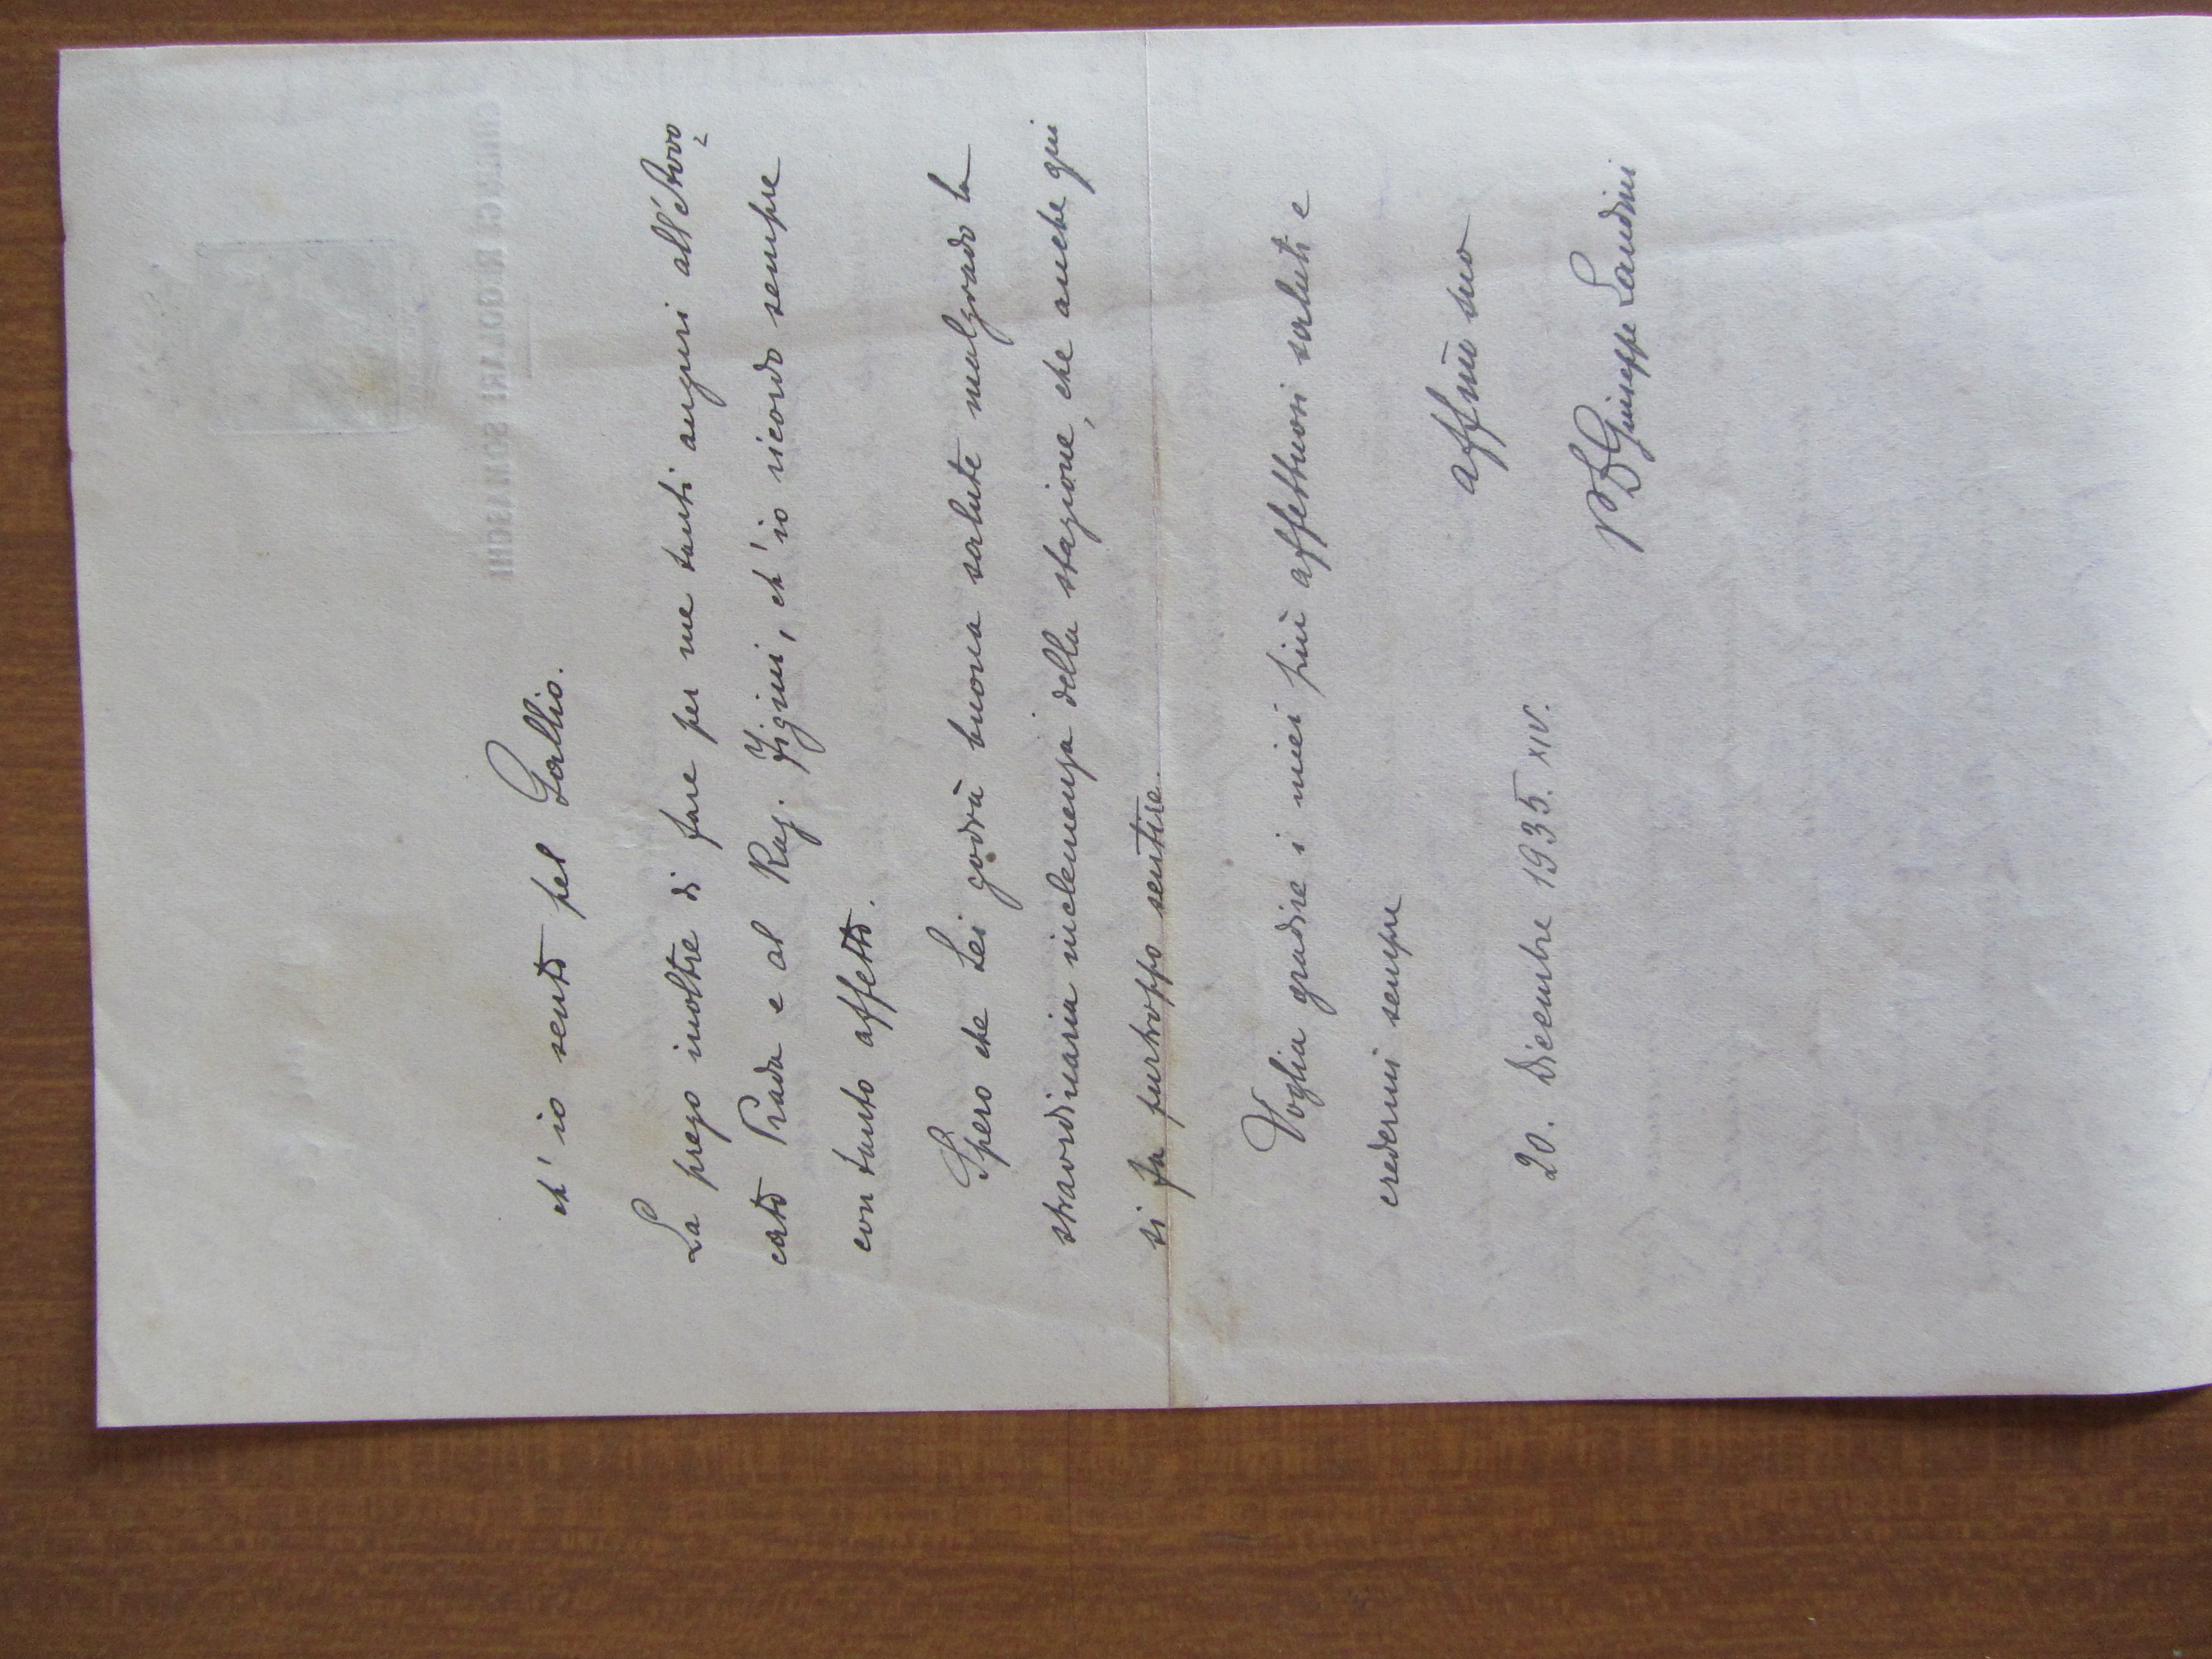 ch' io sento pel Gallio.
La prego inoltre di fare per me tanti auguri all'Avvo=
cato Prada e al Rag. Figini, ch' io ricordo sempre
con tanto affetto.
Spero che Lei godrà buona salute malgrado la
straordinaria inclemenza della stagione, che anche qui
si fa purtroppo sentire.
Voglia gradire i miei più affettuosi saluti e
credermi sempre
affmo suo
20. Dicembre 1935. XIV.
P D Giuseppe Landini
CHIERICI REGOLARI SOMASCHI